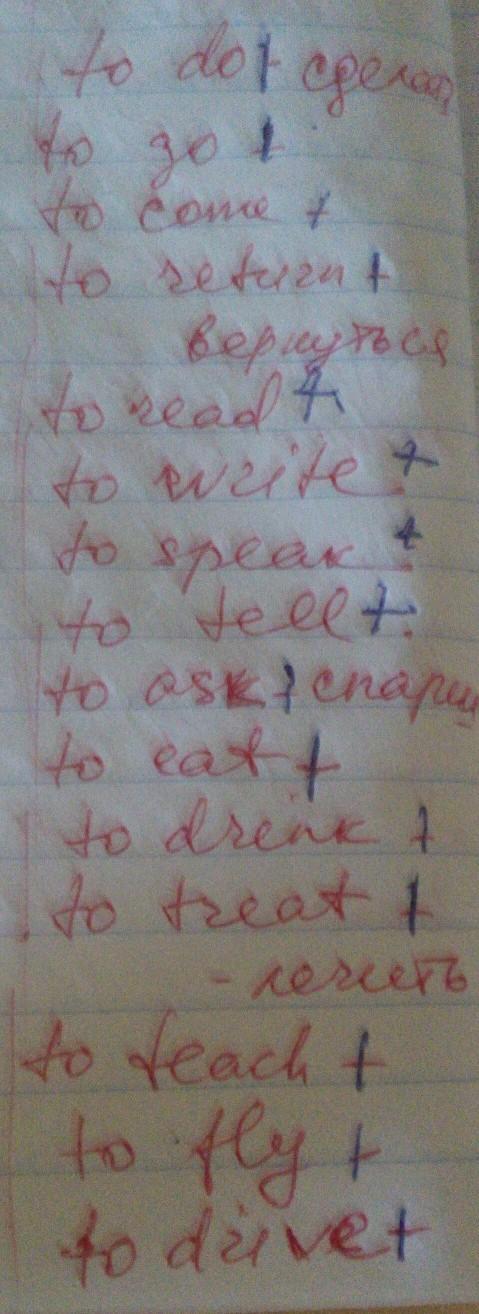 to do + сделать
to go +
to come +
to return +
вернуться
to read +
to write +
to speak +
to tell +
to ask +
to eat +
to drink +
to treat +
- лечить
to teach +
to fly +
to drive +